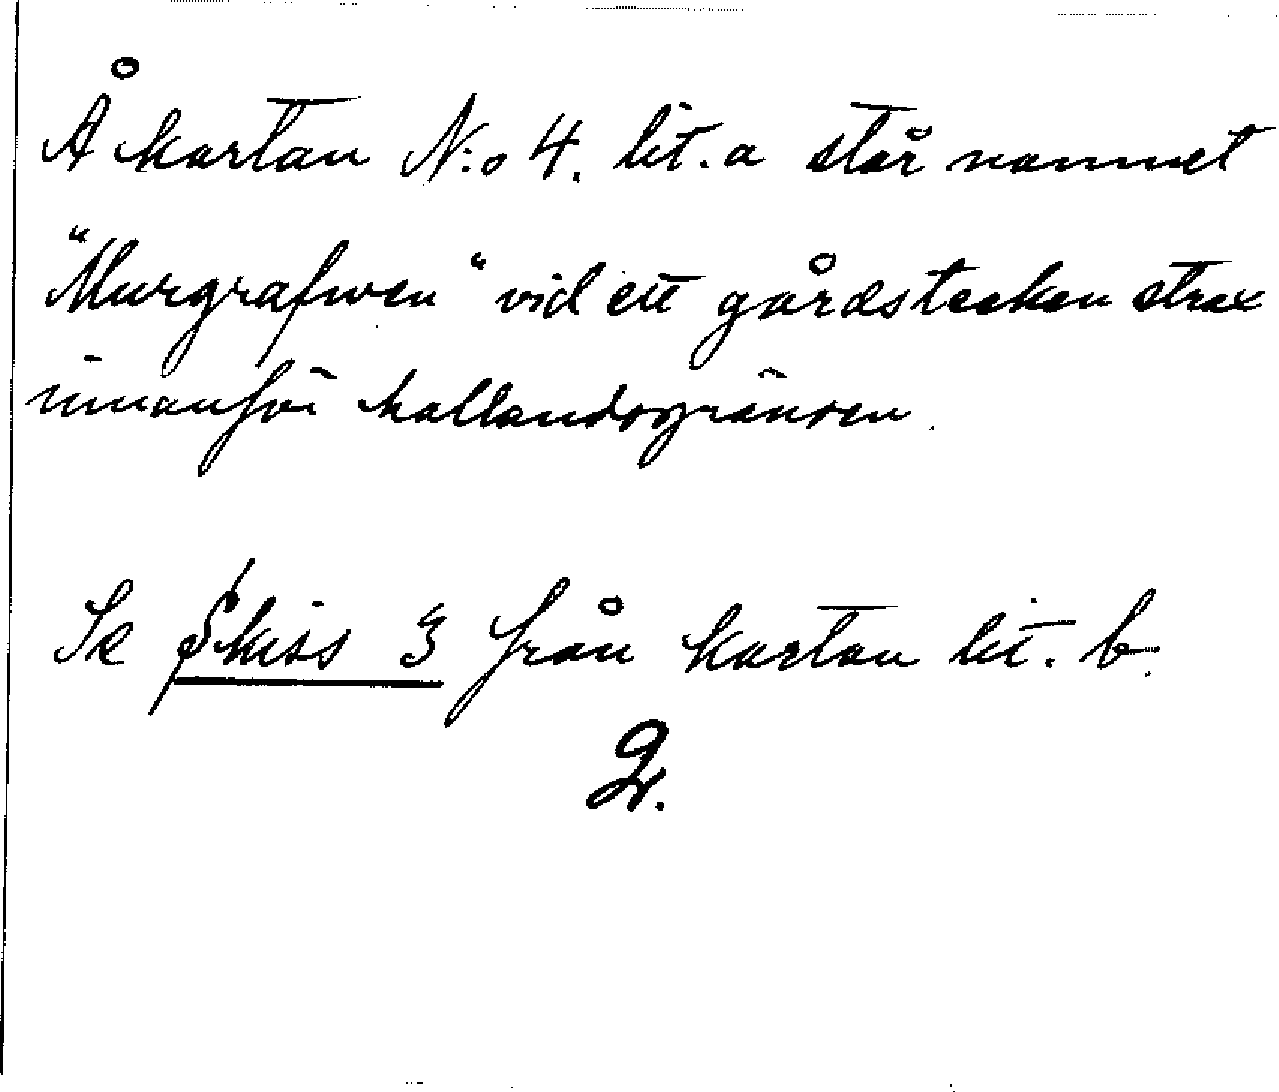 Å kartan N:o 4. lit. a står namnet
"Murgrafwen" vid ett gårdstecken strax
innanför hallandsgränsen.
Se Skiss 3 från kartan lit. b.
2.